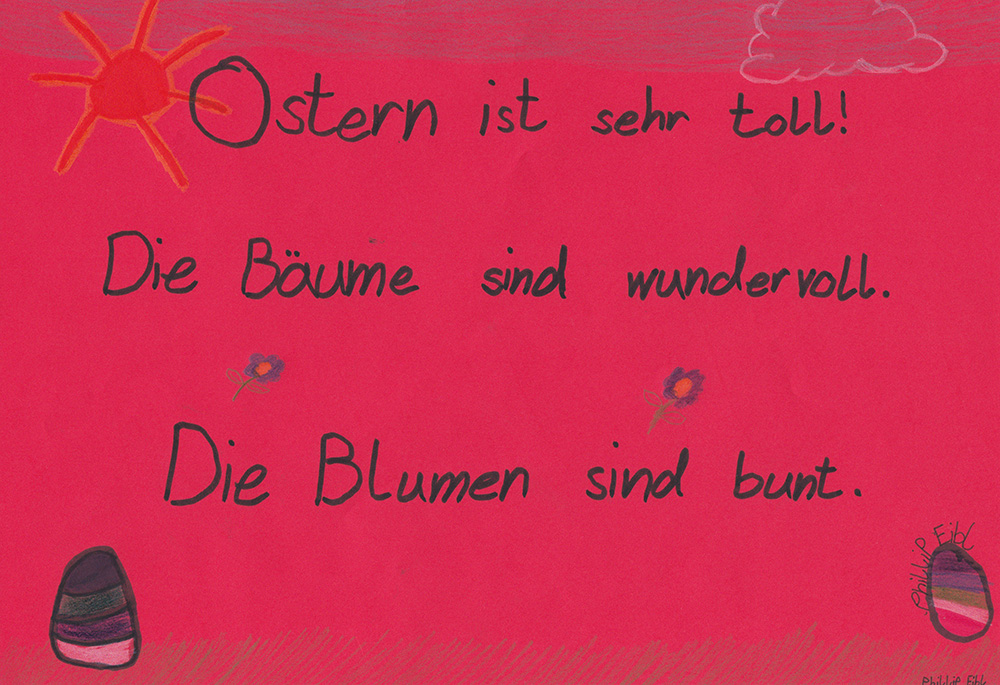 Ostern ist sehr toll!
Die Bäume sind wundervoll.
Die Blumen sind bunt.
Phillip Eibl
Phillip Eibl